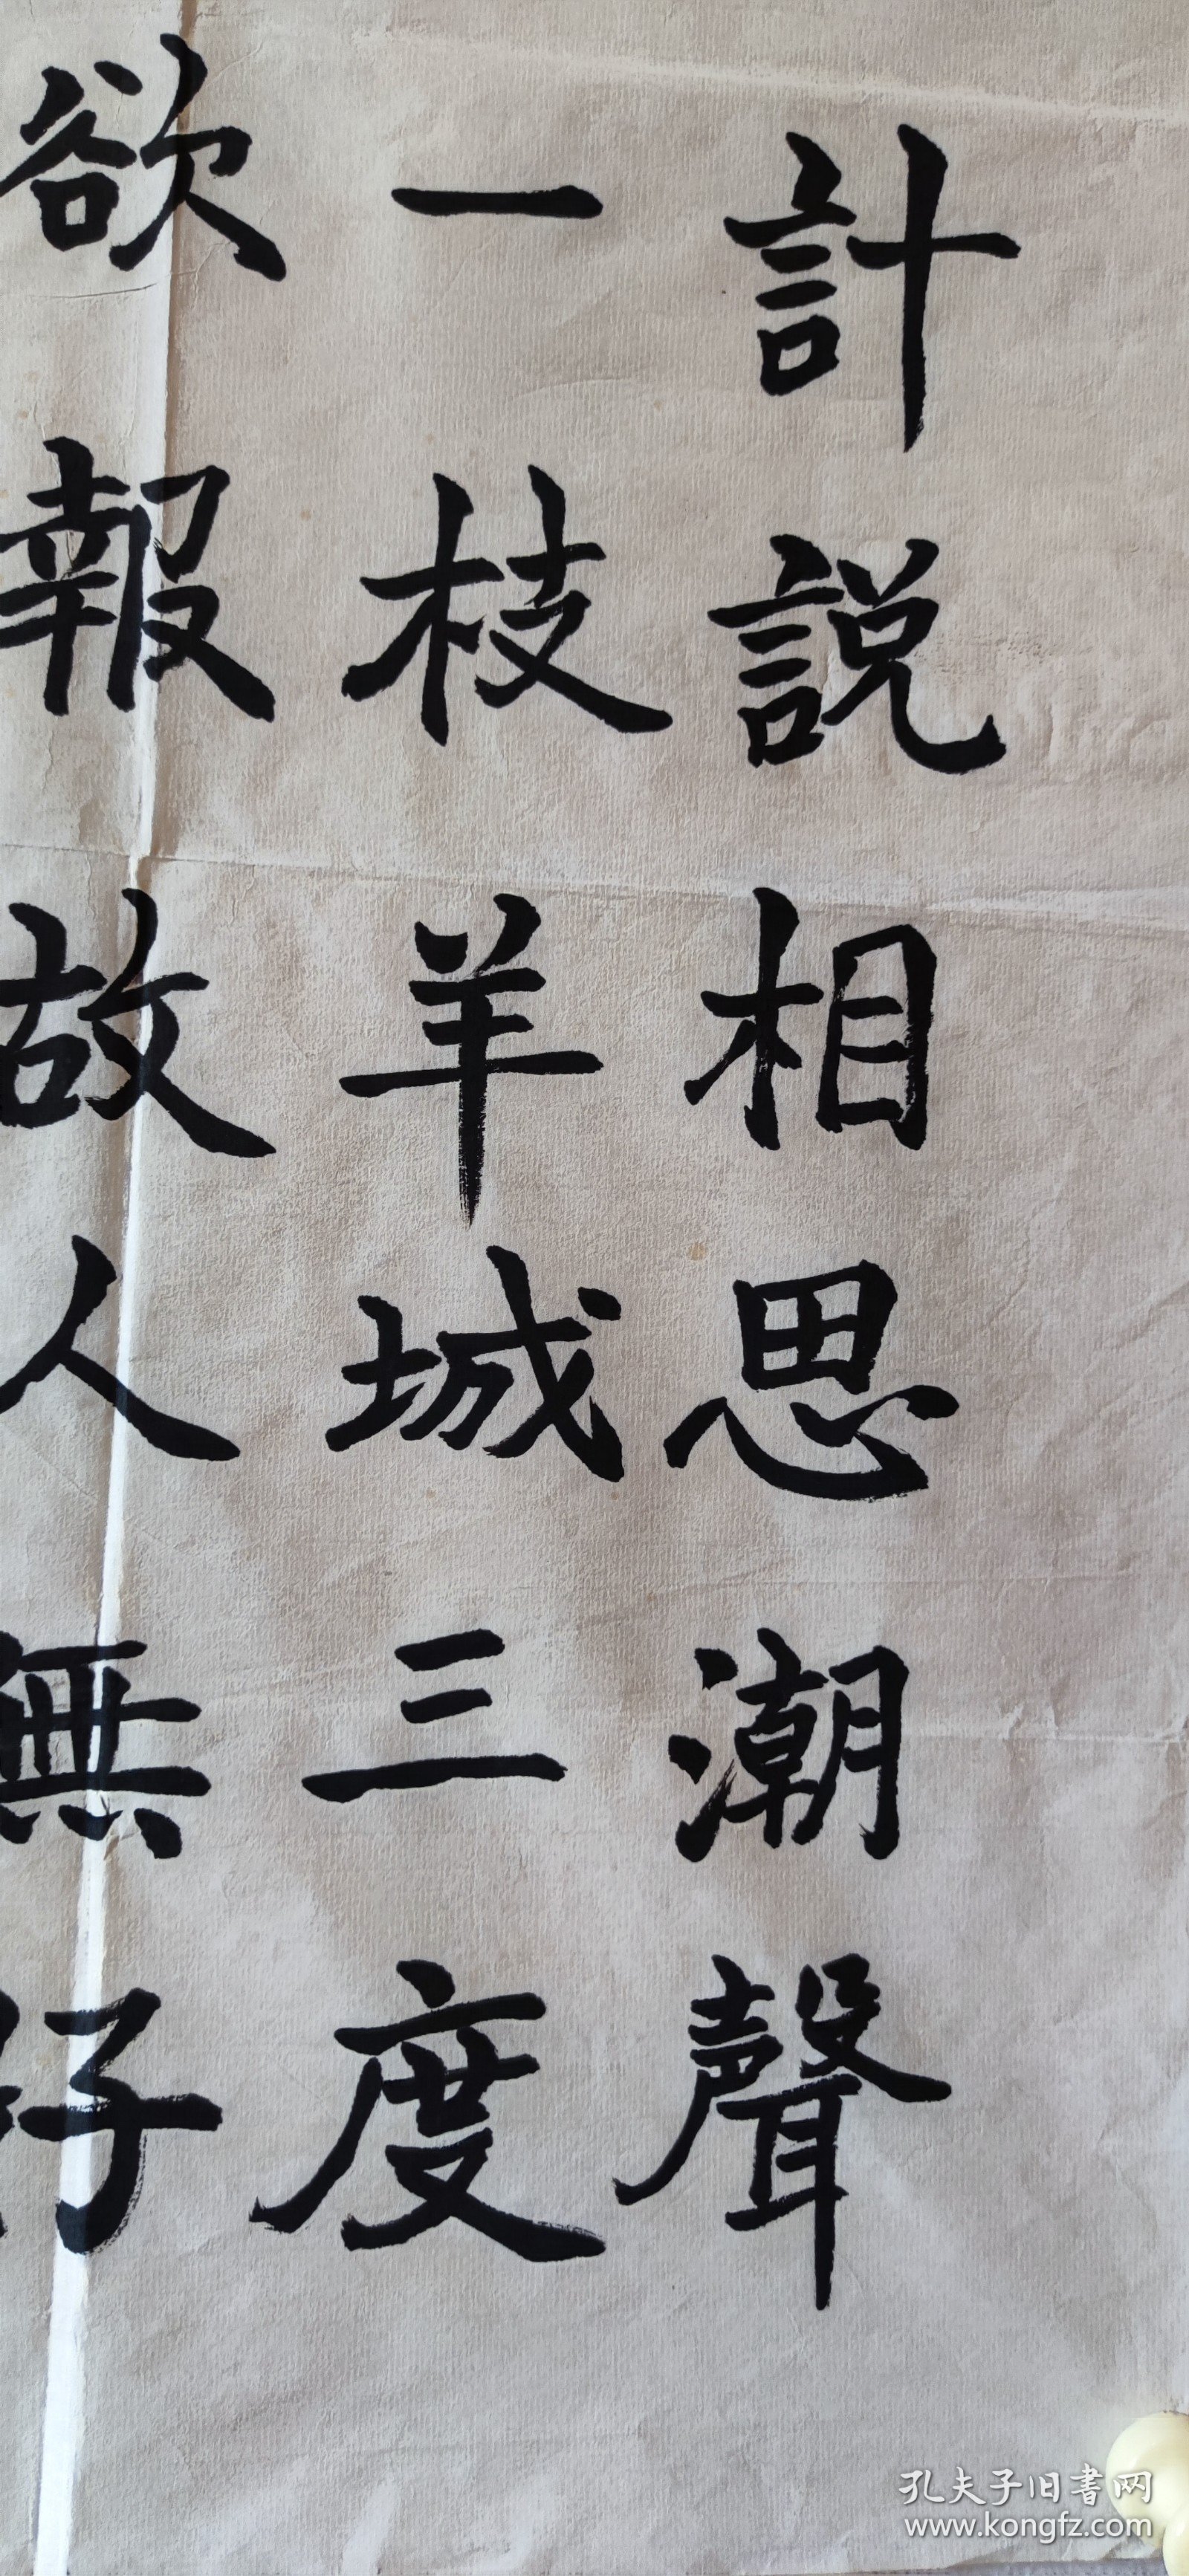 計說相思潮聲
一枝羊城三度
欲報故人無好
孔夫子旧書网
www.kongfz.com